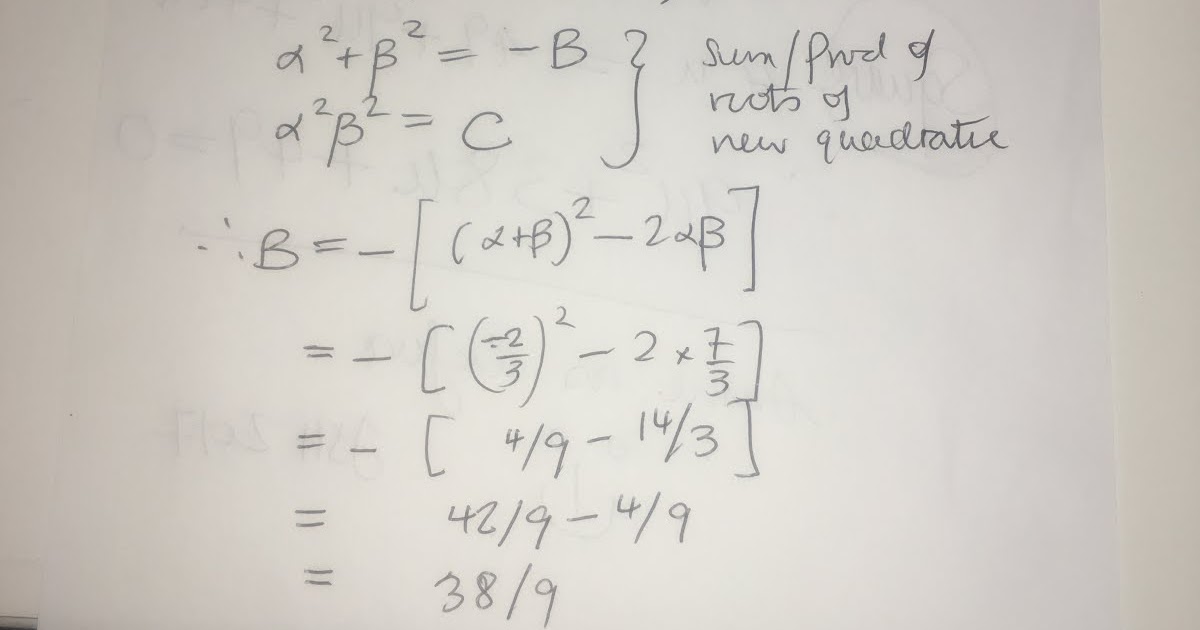 α² + β² = -B } sum/Prod of
roots of
α²β² = C new quadratic
∴ B = - [ (α+β)² - 2αβ ]
= - [ (-2/3)² - 2 × 7/3 ]
= - [ 4/9 - 14/3 ]
= 42/9 - 4/9
= 38/9